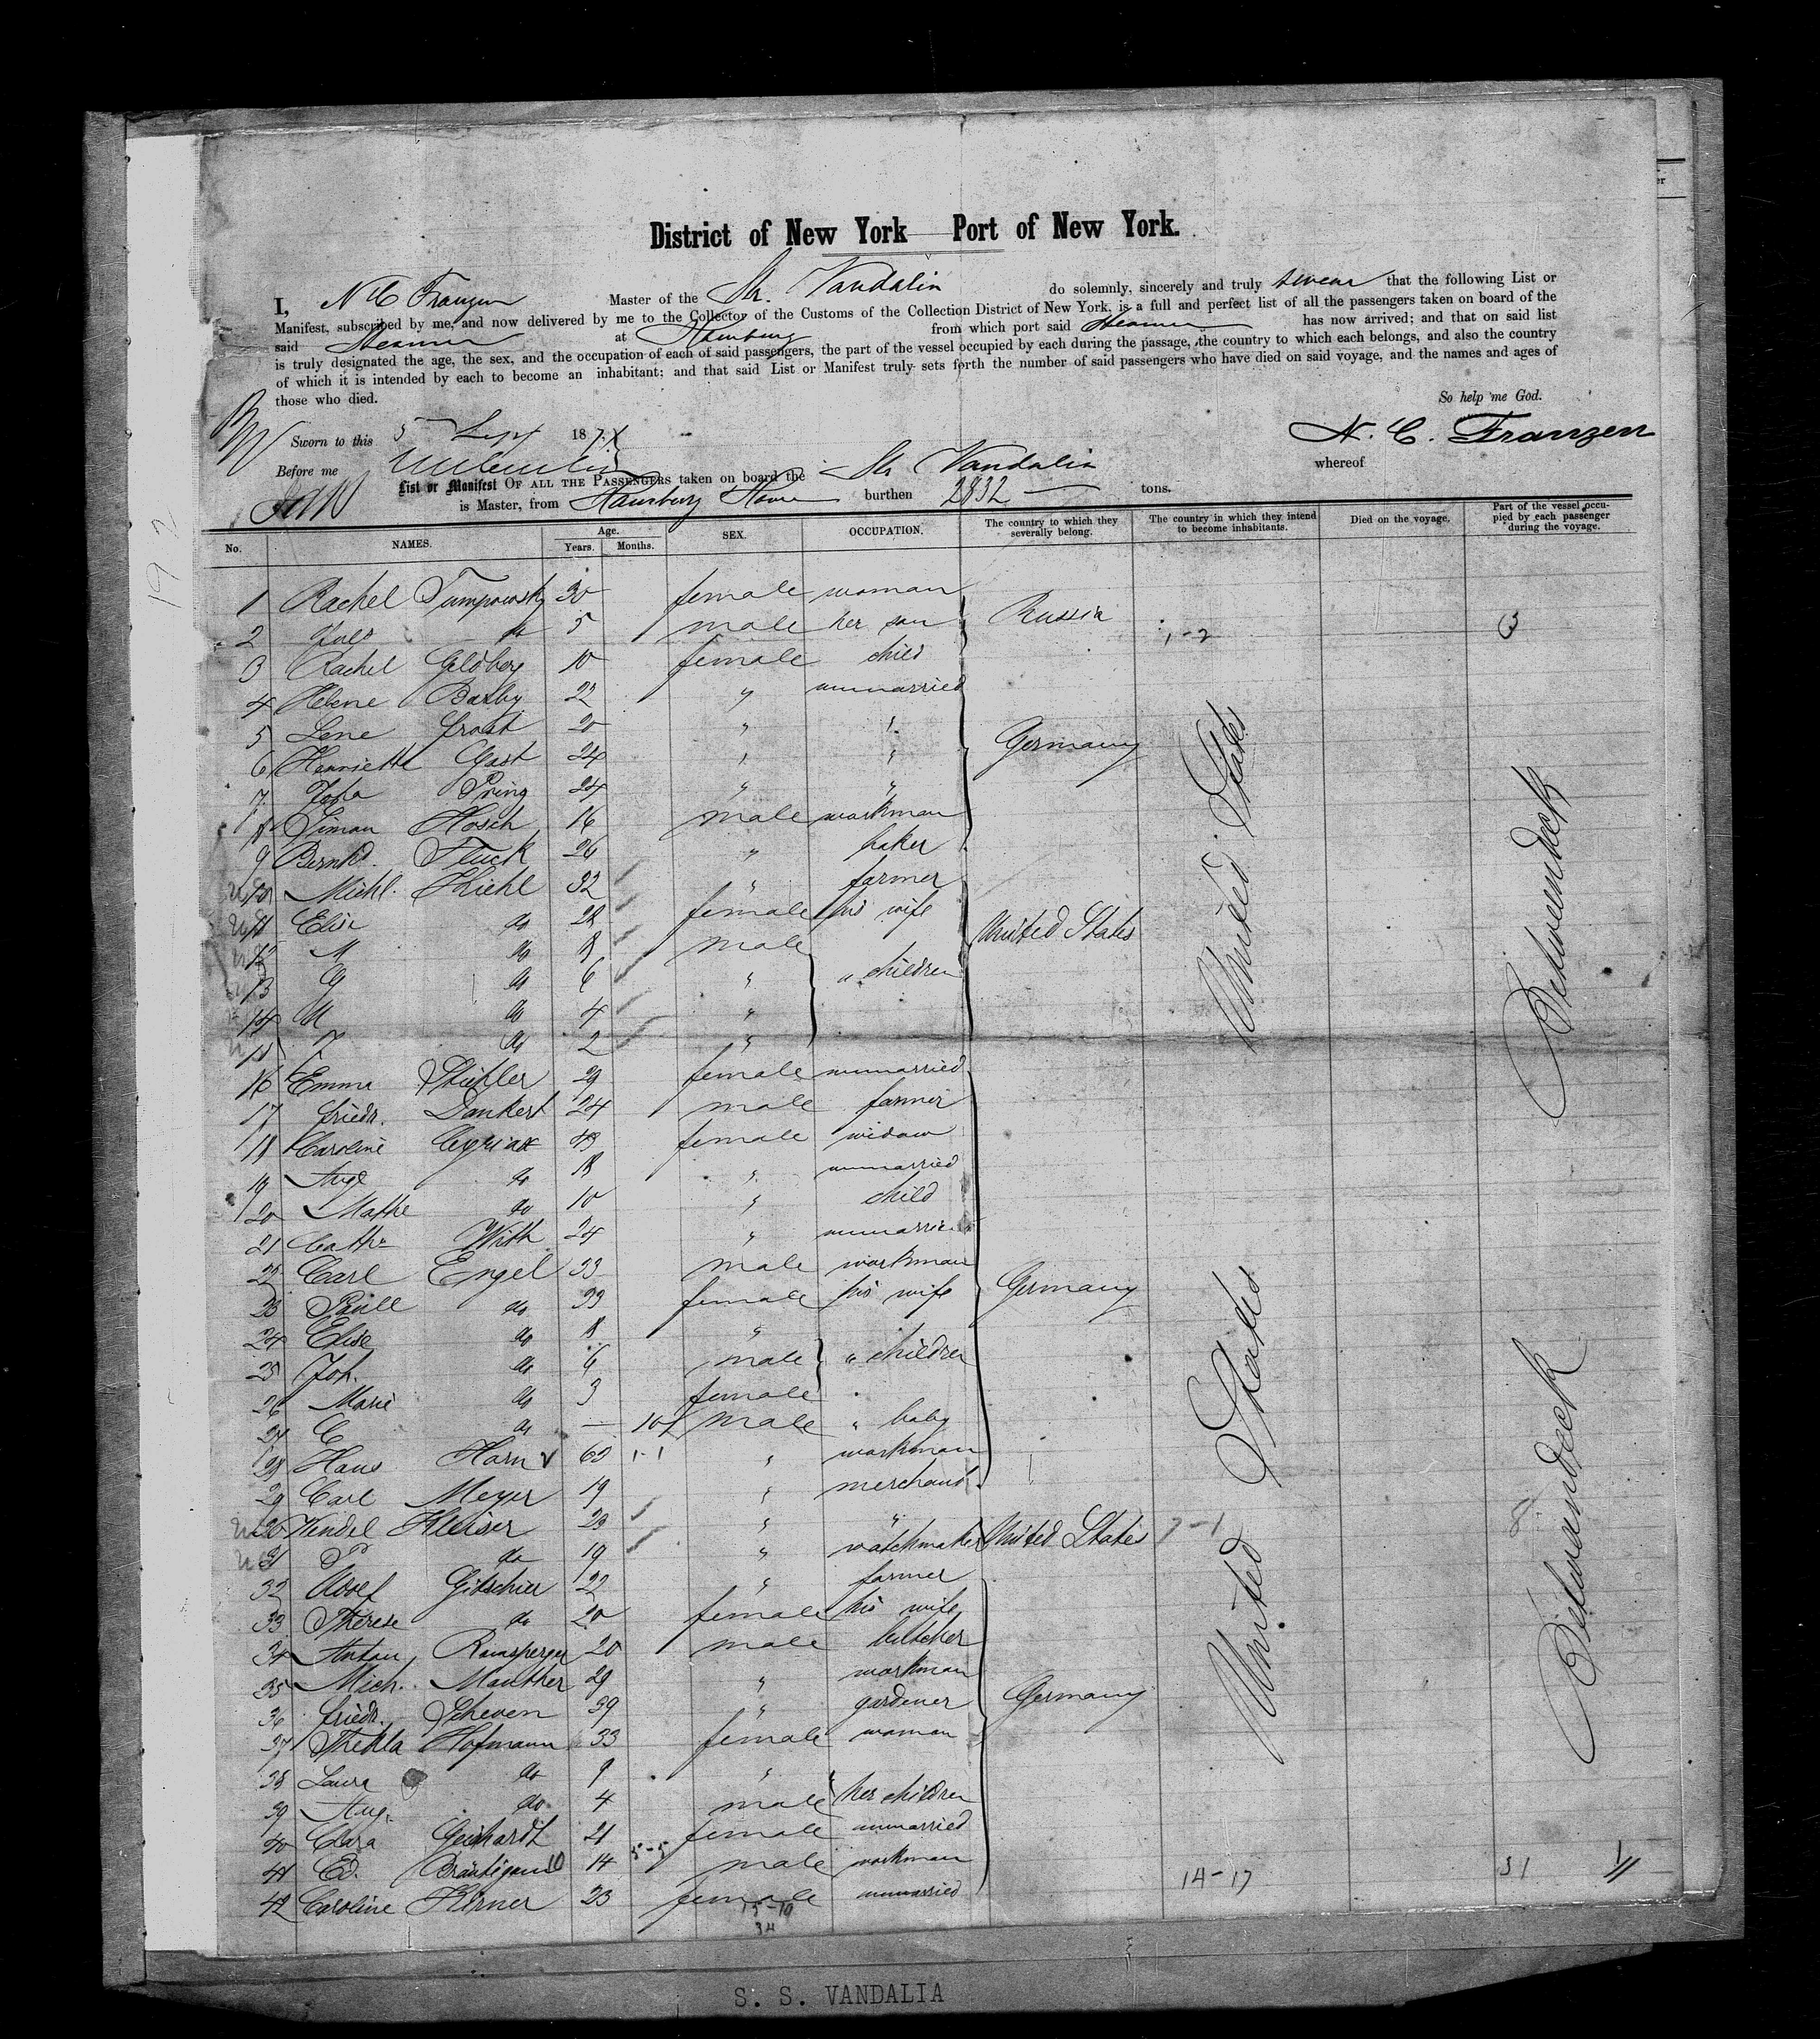 District of New York Port of New York.
I, N C Franzen Master of the Str. Vandalia do solemnly, sincerely and truly swear that the following List or
Manifest, subscribed by me, and now delivered by me to the Collector of the Customs of the Collection District of New York, is a full and perfect list of all the passengers taken on board of the
said Steamer at Hamburg from which port said Steamer has now arrived; and that on said list
is truly designated the age, the sex, and the occupation of each of said passengers, the part of the vessel occupied by each during the passage, the country to which each belongs, and also the country
of which it is intended by each to become an inhabitant; and that said List or Manifest truly sets forth the number of said passengers who have died on said voyage, and the names and ages of
those who died.
So help me God.
Sworn to this 5 Sept 187
N. C. Franzen
Before me
whereof
List or Manifest OF ALL THE PASSENGERS taken on board the Str Vandalia
is Master, from Hamburg Havre burthen 2832 tons.
192
No. NAMES. Age. Years. Months. SEX. OCCUPATION. The country to which they severally belong. The country in which they intend to become inhabitants. Died on the voyage. Part of the vessel occupied by each passenger during the voyage.
1 Rachel 30 female woman
2 do 5 male her son Russia
3 Rachel Goldberg 10 female child
4 Helene 22 " unmarried
5 Lene Frost 20 " "
6 Henriette Gast 24 " " Germany
7 Pring 24 " "
8 Simon Hosch 16 male workman
9 Bernhd. Fluck 26 " baker
10 Michl. Thiehl 32 " farmer
11 Elise do 28 female his wife United States
12 M do 8 male
13 G do 6 " " children
14 do 4 "
15 do 2 "
16 Emma 29 female unmarried
17 Friedr. Dankert 24 male farmer
18 Caroline Cyriax 43 female widow
19 Aug. do 18 " unmarried
20 Mathe do 10 " child
21 Cath. With 24 " unmarried
22 Carl Engel 33 male workman
23 do 33 female his wife Germany
24 Elise do 8 "
25 Joh. do 6 male " children
26 Marie do 3 female
27 C do — 10 male " baby
28 Hans Horn 63 " workman
29 Carl Meyer 19 " merchant
30 Wendel Kleiser 23 " " United States
31 P do 19 " watchmaker
32 Adolf Gitschier 22 " farmer
33 Therese do 20 female his wife
34 Anton Ramsperger 20 male butcher
35 Mich. Manther 29 " workman
36 Friedr. Scheven 39 " gardener Germany
37 Thekla Hofmann 33 female woman
38 Laura do 9 "
39 Aug. do 4 male her children
40 Clara Geihardt 21 female unmarried
41 Ed. Bräutigam 14 male workman
42 Caroline Kirner 23 female unmarried
United States
United States
Betweendeck
Betweendeck
14-17
15-19
34
S. S. VANDALIA